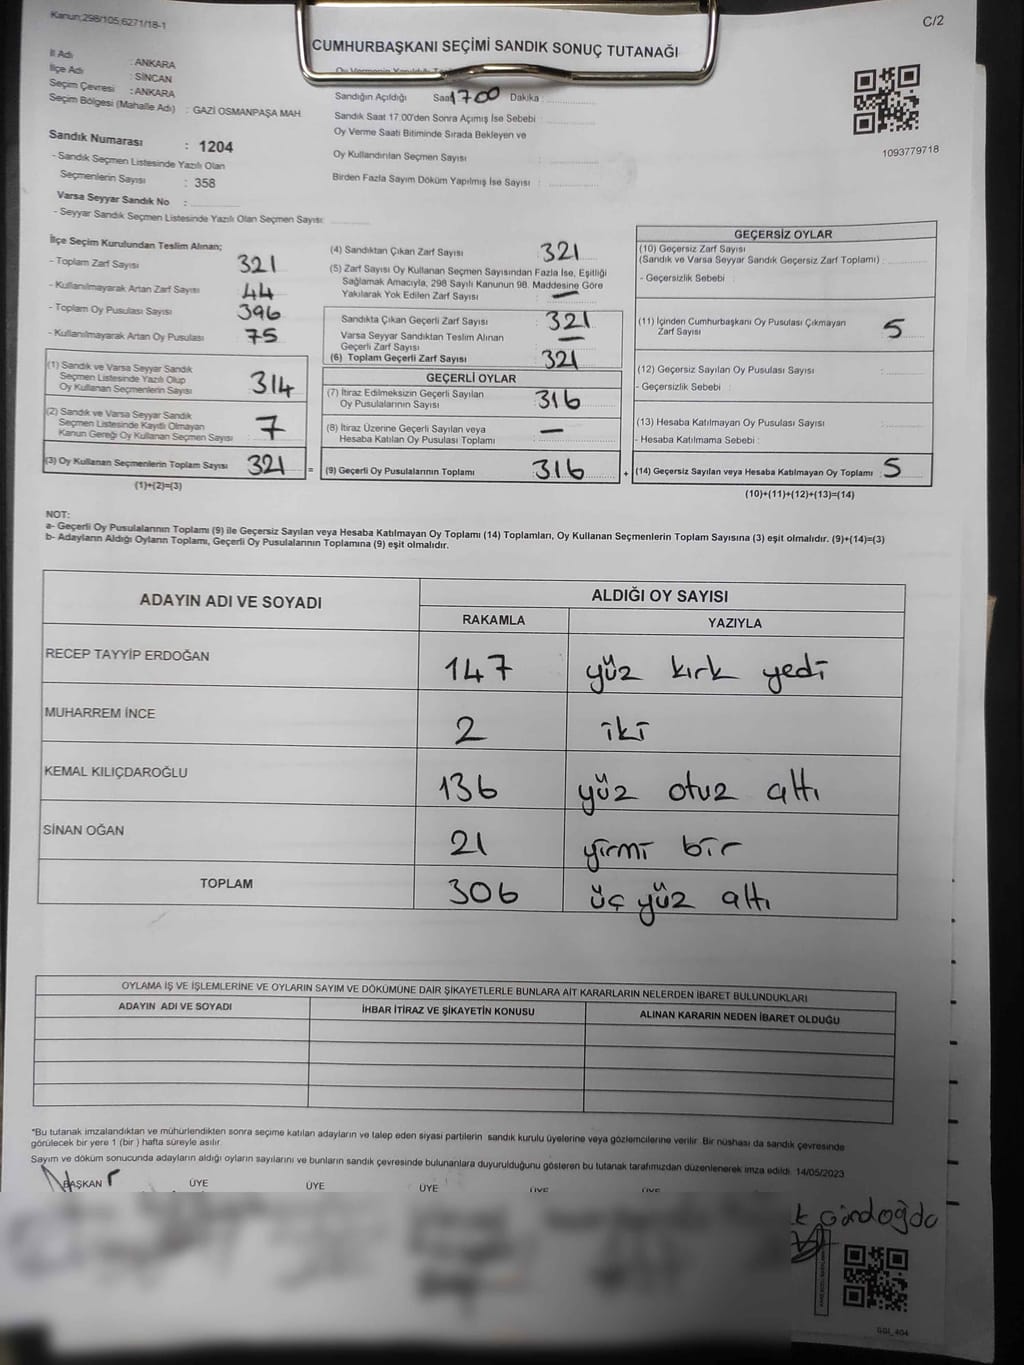 Kanun;298/105,6271/18-1
C/2
CUMHURBAŞKANI SEÇİMİ SANDIK SONUÇ TUTANAĞI
İl Adı : ANKARA
İlçe Adı : SİNCAN
Seçim Çevresi : ANKARA
Seçim Bölgesi (Mahalle Adı) : GAZİ OSMANPAŞA MAH.
Sandık Numarası : 1204
- Sandık Seçmen Listesinde Yazılı Olan
Seçmenlerin Sayısı : 358
Varsa Seyyar Sandık No :
- Seyyar Sandık Seçmen Listesinde Yazılı Olan Seçmen Sayısı:
Sandığın Açıldığı Saat 1700 Dakika :
Sandık Saat 17.00'den Sonra Açımış İse Sebebi :
Oy Verme Saati Bitiminde Sırada Bekleyen ve
Oy Kullandırılan Seçmen Sayısı :
Birden Fazla Sayım Döküm Yapılmış İse Sayısı :
1093779718
İlçe Seçim Kurulundan Teslim Alınan;
- Toplam Zarf Sayısı 321
- Kullanılmayarak Artan Zarf Sayısı 44
- Toplam Oy Pusulası Sayısı 396
- Kullanılmayarak Artan Oy Pusulası 75
(1) Sandık ve Varsa Seyyar Sandık
Seçmen Listesinde Yazılı Olup
Oy Kullanan Seçmenlerin Sayısı 314
(2) Sandık ve Varsa Seyyar Sandık
Seçmen Listesinde Kayıtlı Olmayan
Kanun Gereği Oy Kullanan Seçmen Sayısı : 7
(3) Oy Kullanan Seçmenlerin Toplam Sayısı 321 =
(1)+(2)=(3)
(4) Sandıktan Çıkan Zarf Sayısı 321
(5) Zarf Sayısı Oy Kullanan Seçmen Sayısından Fazla İse, Eşitliği
Sağlamak Amacıyla, 298 Sayılı Kanunun 98. Maddesine Göre
Yakılarak Yok Edilen Zarf Sayısı : —
Sandıkta Çıkan Geçerli Zarf Sayısı 321
Varsa Seyyar Sandıktan Teslim Alınan
Geçerli Zarf Sayısı —
(6) Toplam Geçerli Zarf Sayısı 321
GEÇERLİ OYLAR
(7) İtiraz Edilmeksizin Geçerli Sayılan
Oy Pusulalarının Sayısı 316
(8) İtiraz Üzerine Geçerli Sayılan veya
Hesaba Katılan Oy Pusulası Toplamı —
(9) Geçerli Oy Pusulalarının Toplamı 316 +
GEÇERSİZ OYLAR
(10) Geçersiz Zarf Sayısı
(Sandık ve Varsa Seyyar Sandık Geçersiz Zarf Toplamı) :
- Geçersizlik Sebebi :
(11) İçinden Cumhurbaşkanı Oy Pusulası Çıkmayan
Zarf Sayısı 5
(12) Geçersiz Sayılan Oy Pusulası Sayısı :
- Geçersizlik Sebebi :
(13) Hesaba Katılmayan Oy Pusulası Sayısı :
- Hesaba Katılmama Sebebi :
(14) Geçersiz Sayılan veya Hesaba Katılmayan Oy Toplamı : 5
(10)+(11)+(12)+(13)=(14)
NOT:
a- Geçerli Oy Pusulalarının Toplamı (9) ile Geçersiz Sayılan veya Hesaba Katılmayan Oy Toplamı (14) Toplamları, Oy Kullanan Seçmenlerin Toplam Sayısına (3) eşit olmalıdır. (9)+(14)=(3)
b- Adayların Aldığı Oyların Toplamı, Geçerli Oy Pusulalarının Toplamına (9) eşit olmalıdır.
ADAYIN ADI VE SOYADI
ALDIĞI OY SAYISI
RAKAMLA YAZIYLA
RECEP TAYYİP ERDOĞAN 147 yüz kırk yedi
MUHARREM İNCE 2 iki
KEMAL KILIÇDAROĞLU 136 yüz otuz altı
SİNAN OĞAN 21 yirmi bir
TOPLAM 306 üç yüz altı
OYLAMA İŞ VE İŞLEMLERİNE VE OYLARIN SAYIM VE DÖKÜMÜNE DAİR ŞİKAYETLERLE BUNLARA AİT KARARLARIN NELERDEN İBARET BULUNDUKLARI
ADAYIN ADI VE SOYADI İHBAR İTİRAZ VE ŞİKAYETİN KONUSU ALINAN KARARIN NEDEN İBARET OLDUĞU
*Bu tutanak imzalandıktan ve mühürlendikten sonra seçime katılan adayların ve talep eden siyasi partilerin sandık kurulu üyelerine veya gözlemcilerine verilir. Bir nüshası da sandık çevresinde
görülecek bir yere 1 (bir ) hafta süreyle asılır.
Sayım ve döküm sonucunda adayların aldığı oyların sayılarını ve bunların sandık çevresinde bulunanlara duyurulduğunu gösteren bu tutanak tarafımızdan düzenlenerek imza edildi. 14/05/2023
BAŞKAN ÜYE ÜYE ÜYE ÜYE ÜYE
k Gündoğdu